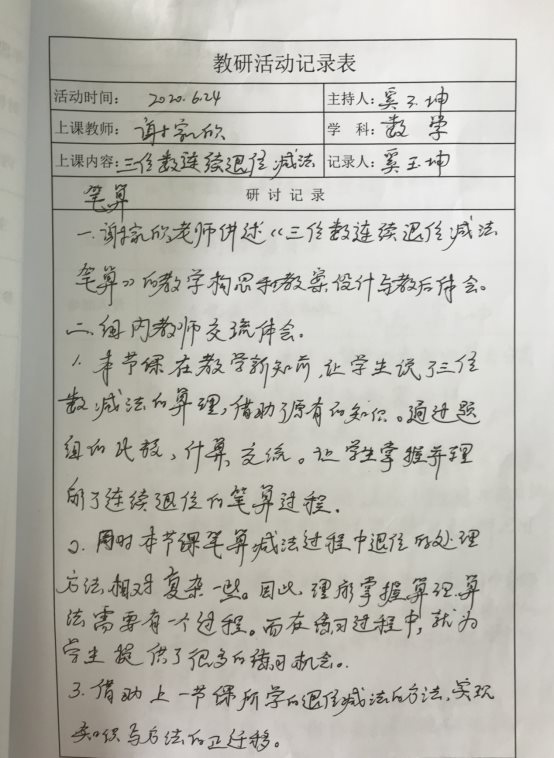 教研活动记录表
活动时间： 2020.6.24 主持人：奚玉坤
上课教师： 谢家欣 学 科：数 学
上课内容：三位数连续退位减法 记录人：奚玉坤
笔算 研 讨 记 录
一.谢家欣老师讲述《三位数连续退位减法
笔算》的教学构思和教案设计与教后体会。
二.组内教师交流体会。
1. 本节课在教学新知前,让学生说了三位
数减法的算理,借助了原有的知识。通过题
组的比较,计算,交流。让学生掌握并理
解了连续退位的笔算过程.
2. 同时本节课笔算减法过程中退位的处理
方法,相对复杂一些。因此,理解掌握算理.算
法需要有一个过程。而在练习过程中,就为
学生提供了很多的练习机会。
3. 借助上一节课所学的退位减法的方法,实现
知识与方法的正迁移。